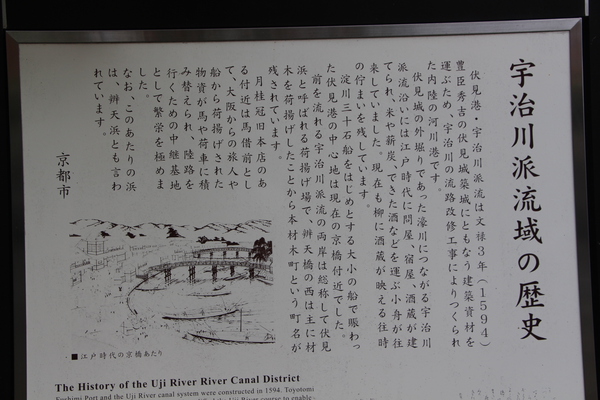 宇治川派流域の歴史
伏見港・宇治川派流は文禄3年(1594)
豊臣秀吉の伏見城築城にともなう建築資材を
運ぶため、宇治川の流路改修工事によりつくられ
た内陸の河川港です。
伏見城の外堀りであった濠川につながる宇治川
派流沿いには江戸時代に問屋、宿屋、酒蔵が建
てられ、米や薪炭、できた酒などを運ぶ小舟が往
来していました。現在も柳に酒蔵が映える往時
の佇まいを残しています。
淀川三十石船をはじめとする大小の船で賑わっ
た伏見港の中心地は現在の京橋付近でした。
前を流れる宇治川派流の両岸は総称して伏見
浜と呼ばれる荷揚げ場で、辨天橋の西は主に材
木を荷揚げしたことから本材木町という町名が
残されています。
月桂冠旧本店のあ
る付近は馬借前とし
て、大阪からの旅人や
船から荷揚げされた
物資が馬や荷車に積
み替えられ、陸路を
行くための中継基地
として繁栄を極めま
した。
なお、このあたりの浜
は、辨天浜とも言わ
れています。
京都市
■江戸時代の京橋あたり
The History of the Uji River River Canal District
Fushimi Port and the Uji River canal system were constructed in 1594. Toyotomi